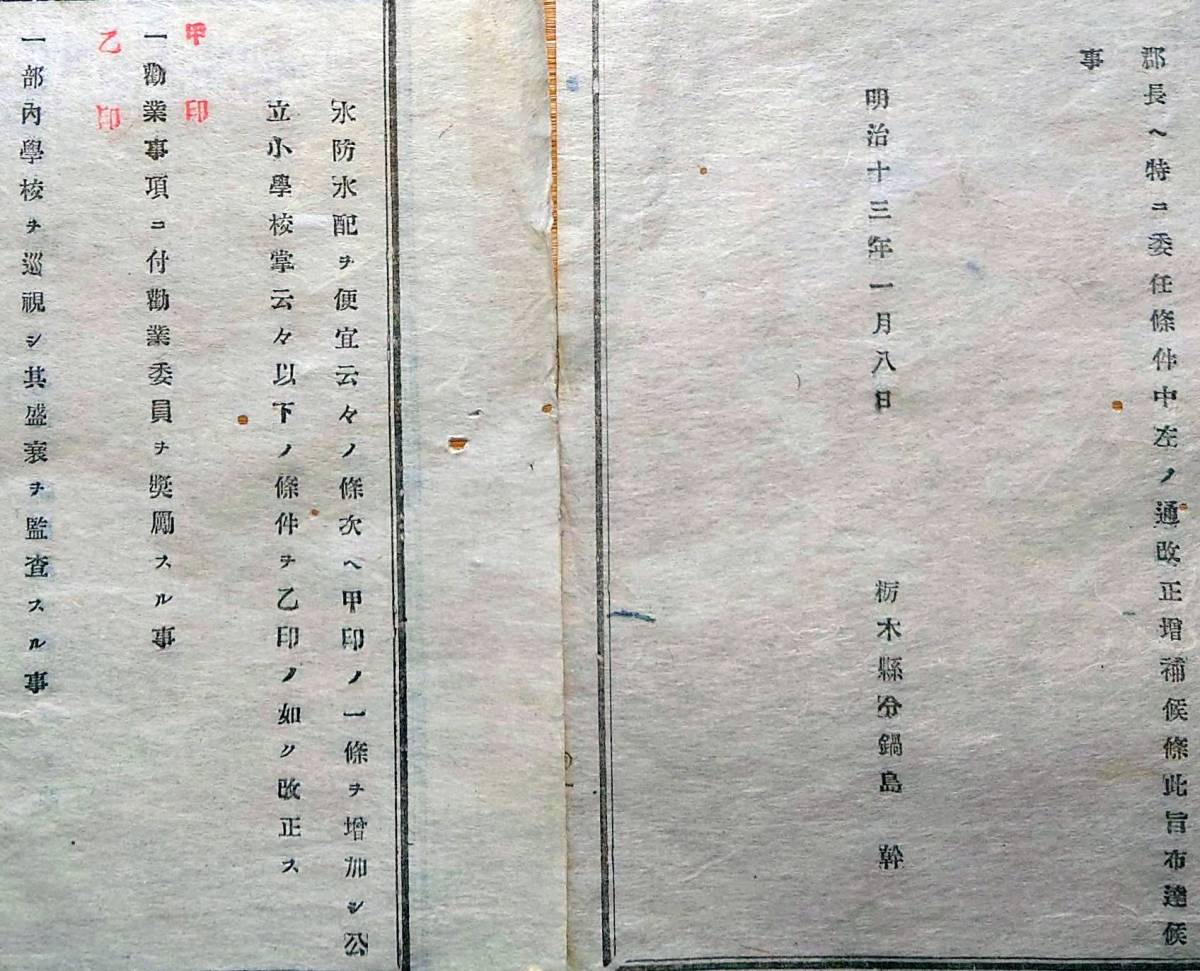 郡長ヘ特ニ委任條件中左ノ通改正增補候條此旨布達候
事
明治十三年一月八日
栃木縣令鍋島 幹
水防水配ヲ便宜云々ノ條次ヘ甲印ノ一條ヲ增加シ公
立小學校掌云々以下ノ條件ヲ乙印ノ如ク改正ス
甲 印
一勸業事項ニ付勸業委員ヲ奬勵スル事
乙 印
一部內學校ヲ巡視シ其盛衰ヲ監査スル事